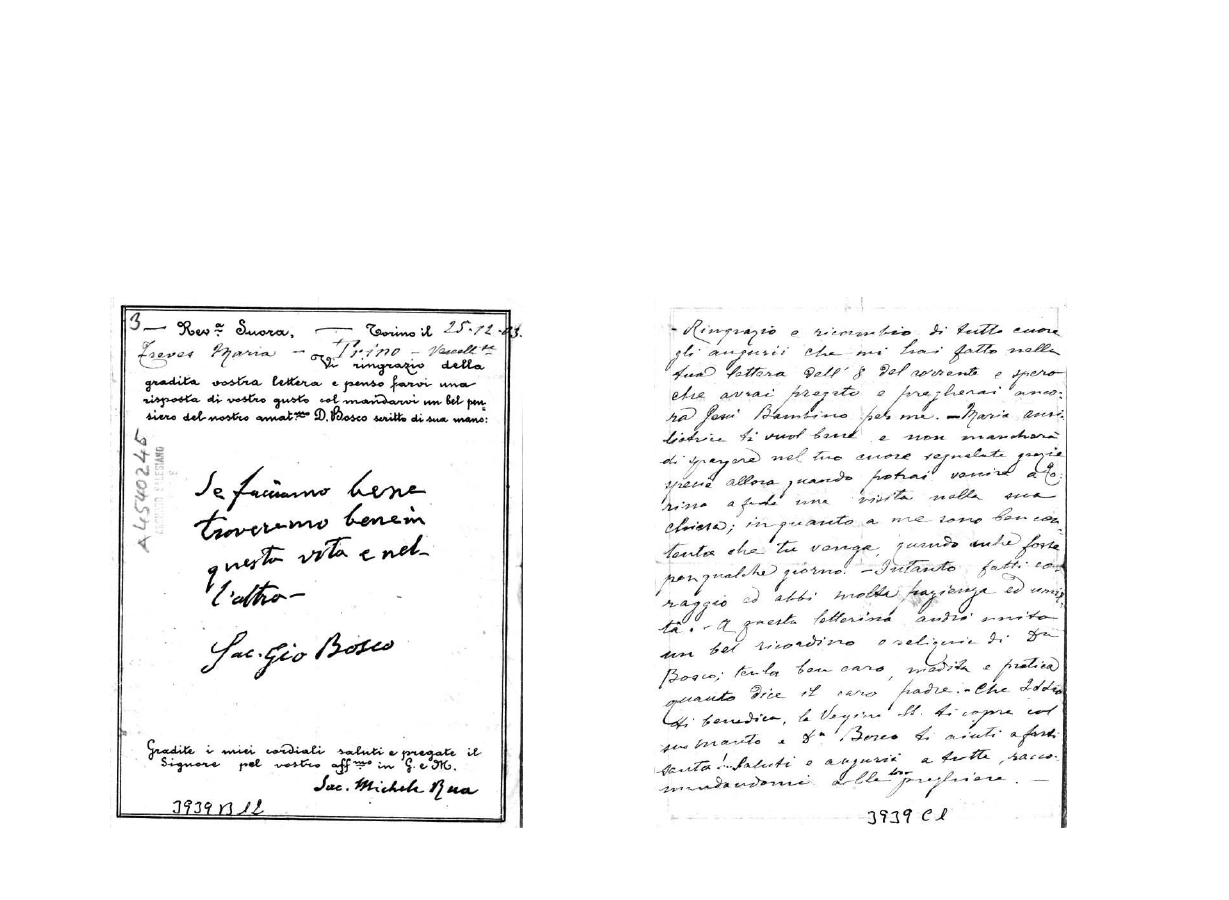 3 — Rev.ª Suora, — Torino il 25-12-03.
Treves Maria — Trino - Vercell.se
Vi ringrazio della
gradita vostra lettera e penso farvi una
risposta di vostro gusto col mandarvi un bel pen-
siero del nostro amat.mo D. Bosco scritto di sua mano:
A4540245
ARCHIVIO SALESIANO
Se facciamo bene
troveremo bene in
questa vita e nel-
l'altra -
Sac. Gio Bosco
Gradite i miei cordiali saluti e pregate il
Signore pel vostro aff.mo in G. e M.
Sac. Michele Rua
3939 B 12
- Ringrazio e ricambio di tutto cuore
gli augurii che mi hai fatto nella
tua lettera dell' 8 del corrente e spero
che avrai pregato e pregherai anco-
ra Gesù Bambino per me. - Maria ausi-
liatrice ti vuol bene e non mancherà
di spargere nel tuo cuore segnalate grazie
specie allora quando potrai venire a To-
rino a farle una visita nella sua
chiesa; in quanto a me sono ben con-
tento che tu venga, quando anche fosse
per qualche giorno. - Intanto fatti co-
raggio ed abbi molta pazienza ed umil-
tà. - A questa letterina andrà unito
un bel ricordino e reliquia di Dn
Bosco; tienla ben caro, medita e pratica
quanto dice il caro padre. - Che Iddio
ti benedica, la Vergine SS. ti copra col
suo manto e Dn Bosco ti aiuti a farti
santa! Saluti e augurii a tutte, racco-
mandandomi alle loro preghiere. -
3939 C 1